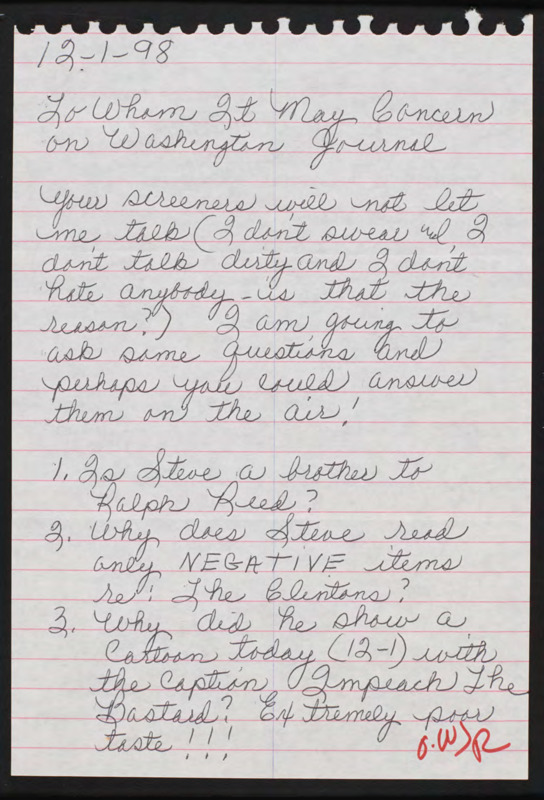 12-1-98
To Whom It May Concern
on Washington Journal
Your screeners will not let
me talk (I don't swear and I
don't talk dirty and I don't
hate anybody - is that the
reason?) I am going to
ask some questions and
perhaps you could answer
them on the air!
1. Is Steve a brother to
Ralph Reed?
2. Why does Steve read
only NEGATIVE items
re: The Clintons?
3. Why did he show a
Cartoon today (12-1) with
the caption Impeach The
Bastard? Extremely poor
taste!!!